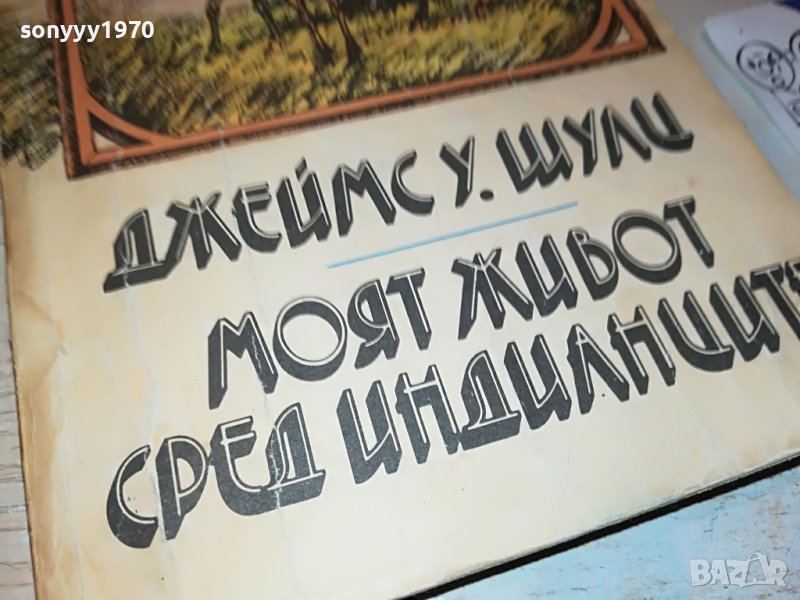 sonyyy1970
ДЖЕЙМС У. ШУЛЦ
МОЯТ ЖИВОТ
СРЕД ИНДИАНЦИТ
BAZAR